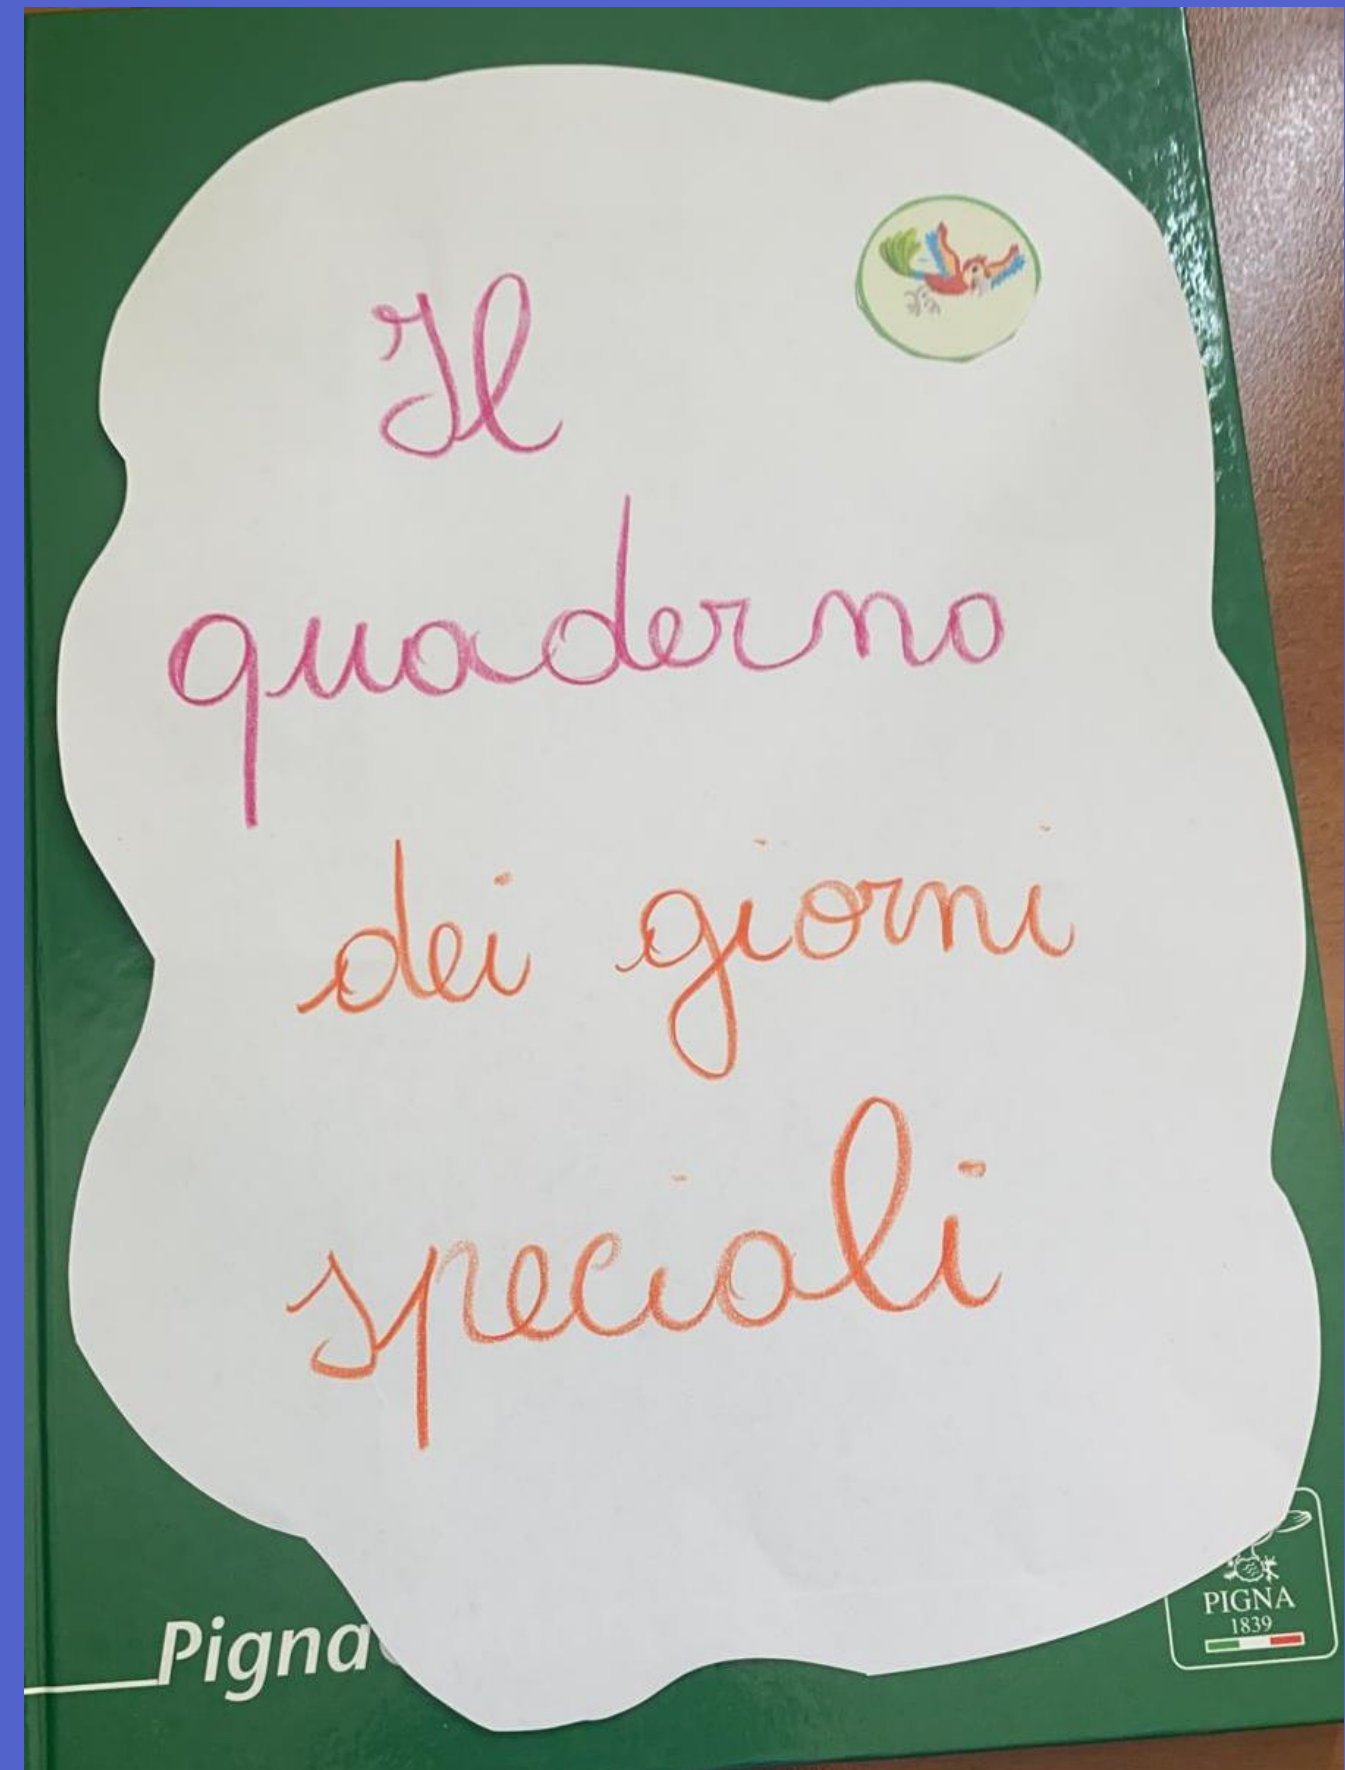 Il
quaderno
dei giorni
speciali
Pigna
PIGNA
1839